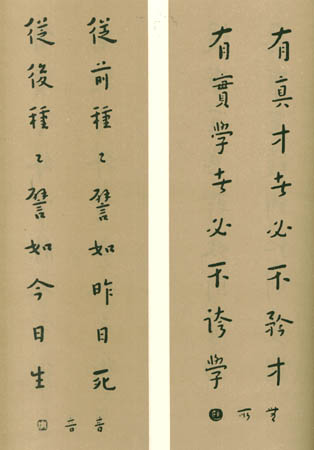 有真才者必不矜才
有實学者必不誇学
從前種〻譬如昨日死
從後種〻譬如今日生